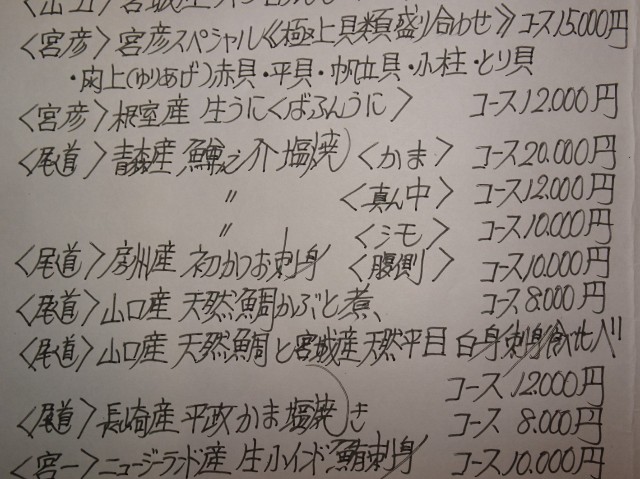 〈宮彦〉宮彦スペシャル《極上貝類盛り合わせ》コース15.000円
・閖上(ゆりあげ)赤貝・平貝・帆立貝・小柱・とり貝
〈宮彦〉根室産 生うに〈ばふんうに〉 コース12.000円
〈尾道〉青森産 塩焼〈かま〉 コース20.000円
〃 〈真ん中〉 コース12.000円
〃 〈シモ〉 コース10.000円
〈尾道〉房州産 初かつお刺身〈腹側〉 コース10.000円
〈尾道〉山口産 天然鯛かぶと煮、 コース8.000円
〈尾道〉山口産 天然鯛と宮城産天然平目 白身刺身食べ比べ
コース12.000円
〈尾道〉長崎産 平政かま塩焼き コース8.000円
〈宮一〉ニュージーランド産 生インド鮪刺身 コース10.000円